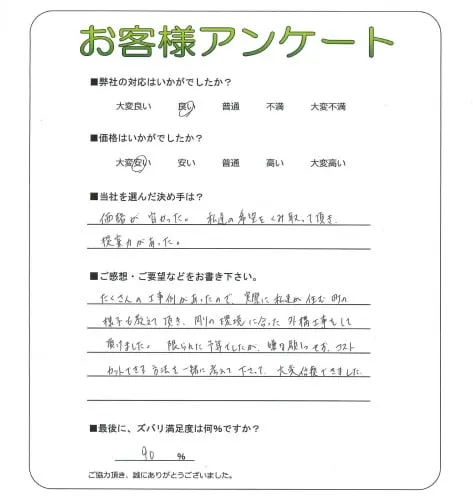 お客様アンケート
■弊社の対応はいかがでしたか？
大変良い 良い 普通 不満 大変不満
■価格はいかがでしたか？
大変安い 安い 普通 高い 大変高い
■当社を選んだ決め手は？
価格が安かった。 私達の希望をくみ取って頂き
提案力があった。
■ご感想・ご要望などをお書き下さい。
たくさんの工事例があったので、実際に私達が住む町の
様子も教えて頂き、周りの環境に合った外構工事をして
頂けました。 限られた予算でしたが、コスト
カットできる方法を一緒に考えて下さって、大変信頼できました。
■最後に、ズバリ満足度は何%ですか？
90 %
ご協力頂き、誠にありがとうございました。